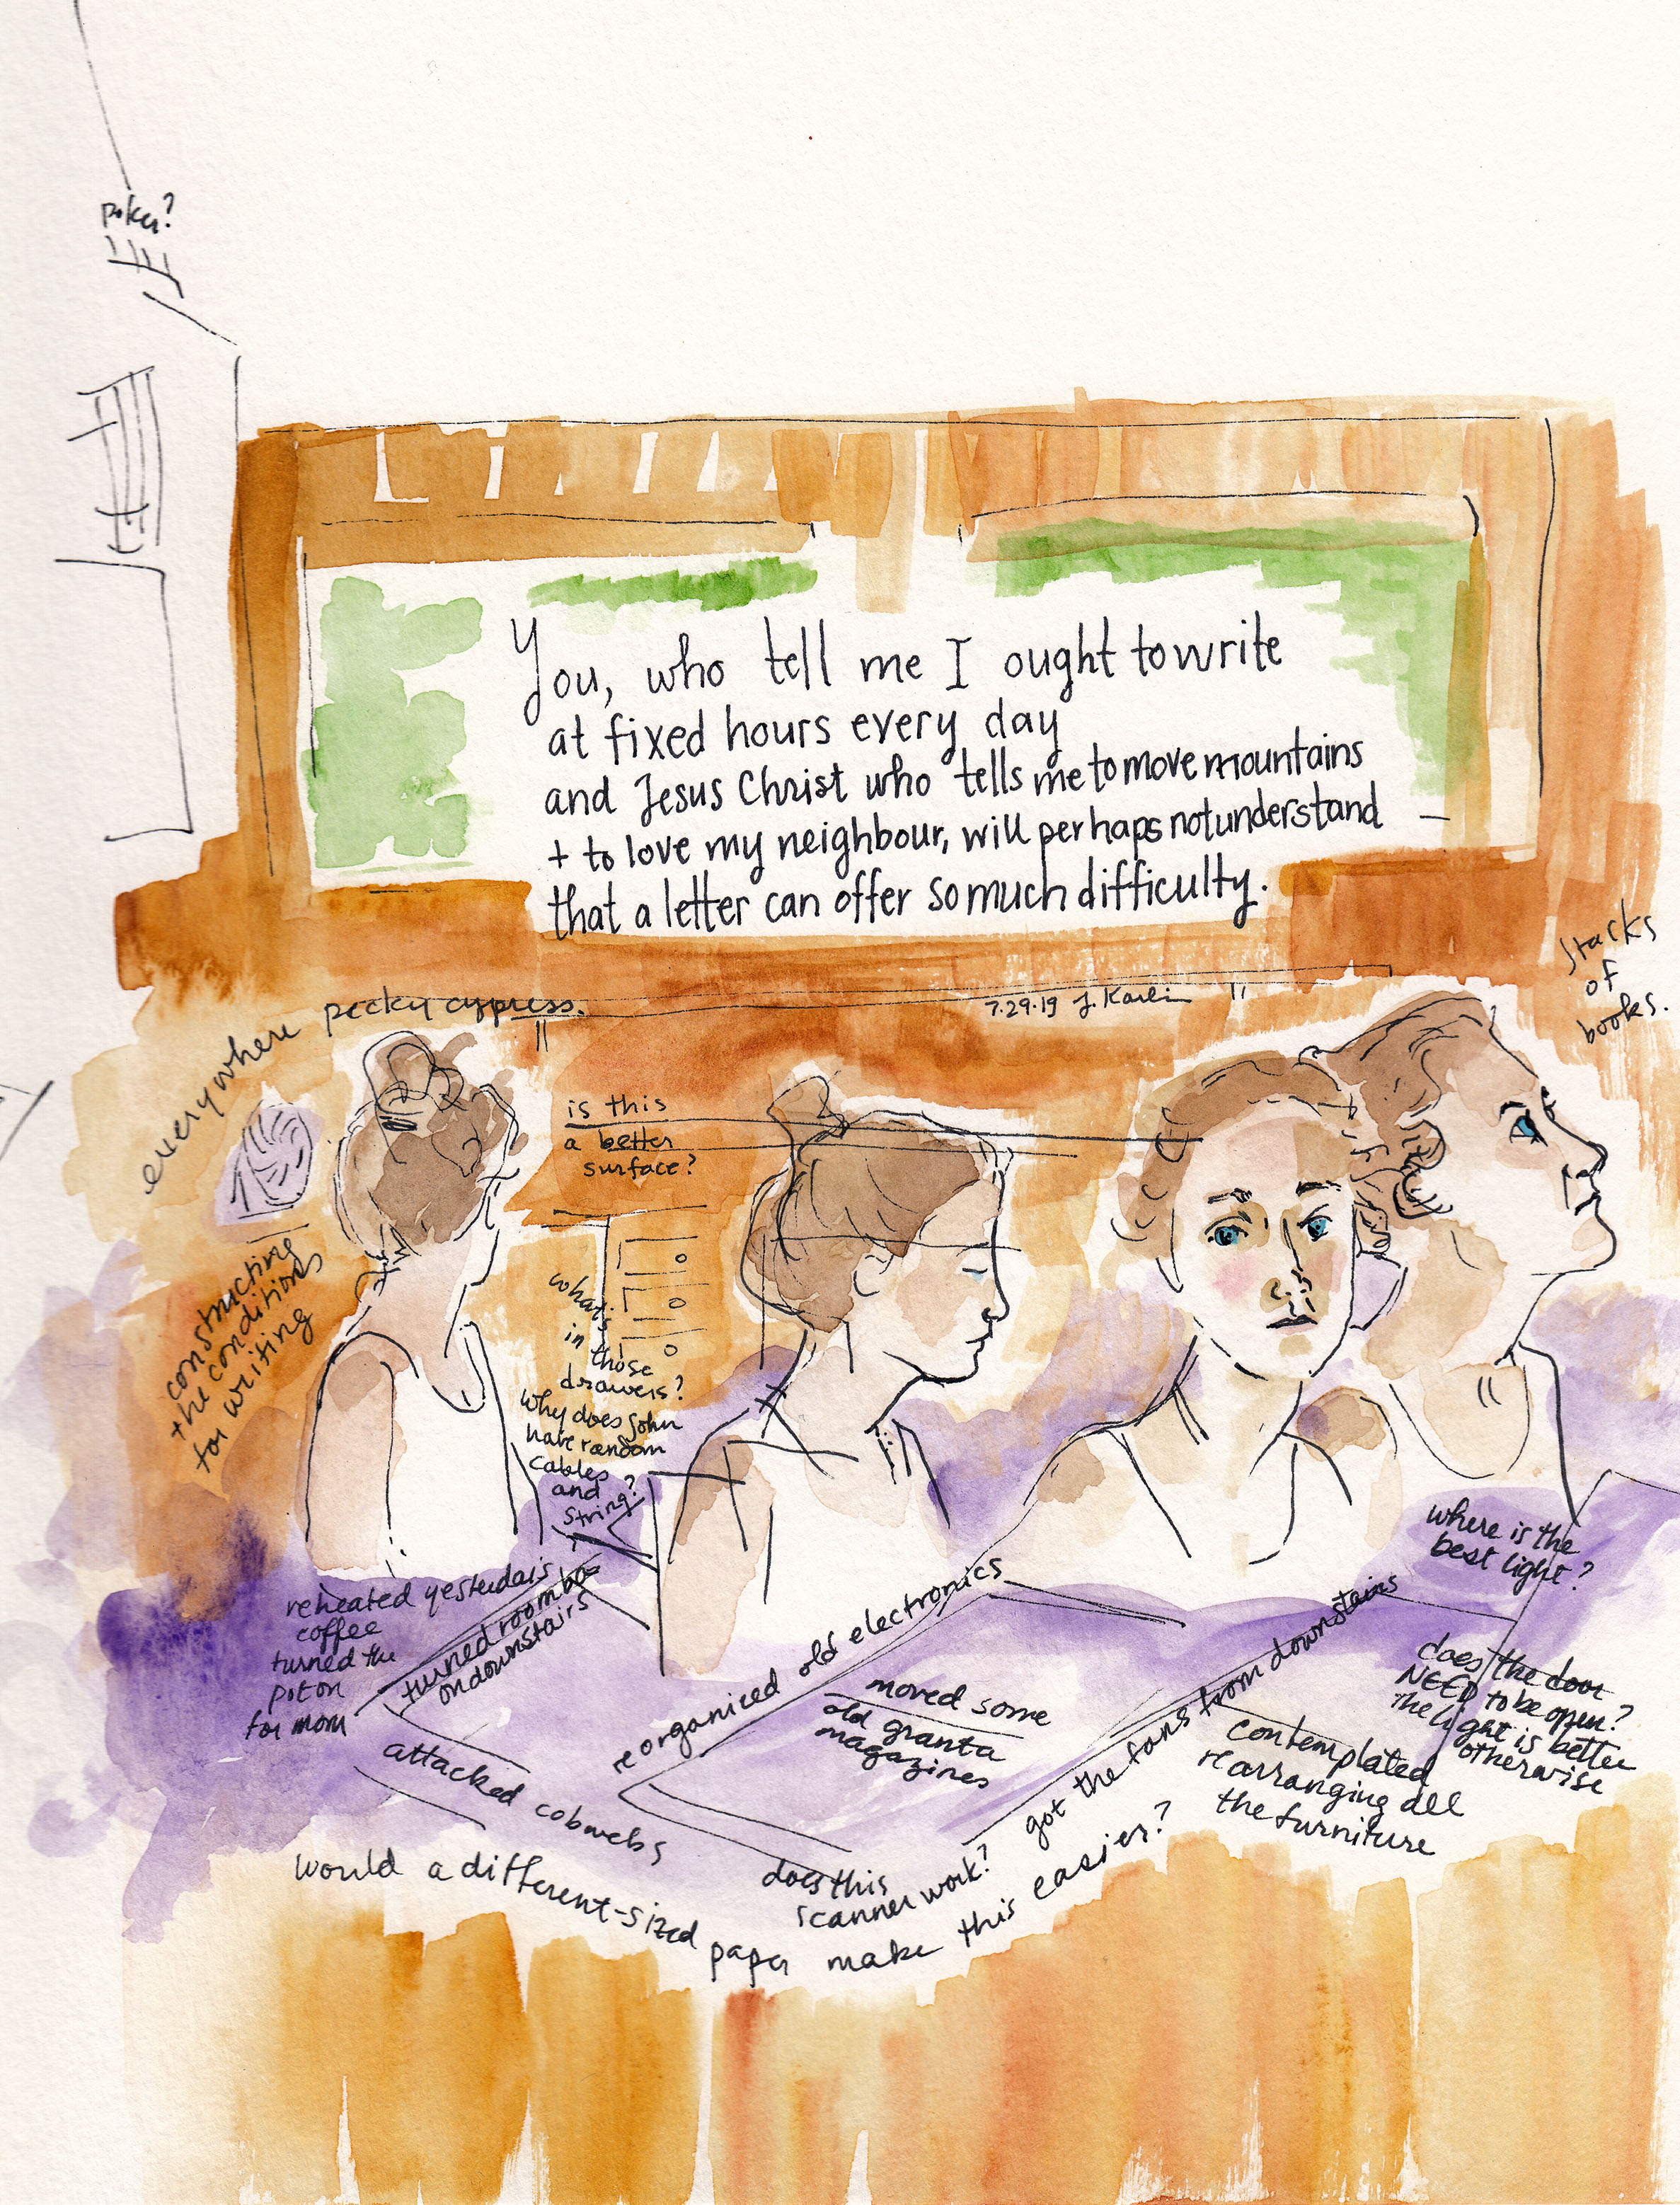 poker?
You, who tell me I ought to write
at fixed hours every day
and Jesus Christ who tells me to move mountains
+ to love my neighbour, will perhaps not understand —
that a letter can offer so much difficulty.
stacks
of
books.
everywhere pecky cypress.
7.29.19 J. Karlin
is this
a better
surface?
constructing
the conditions
for writing
what's
in
those
drawers?
why does John
have random
cables
and
string?
where is the
best light?
reheated yesterdays
coffee
turned the
pot on
for mom
turned roomba
on downstairs
attacked cobwebs
reorganized old electronics
moved some
old granta
magazines
got the fans from downstairs
does the door
NEED to be open?
The light is better
otherwise
contemplated
rearranging all
the furniture
does this
scanner work?
would a different-sized paper make this easier?